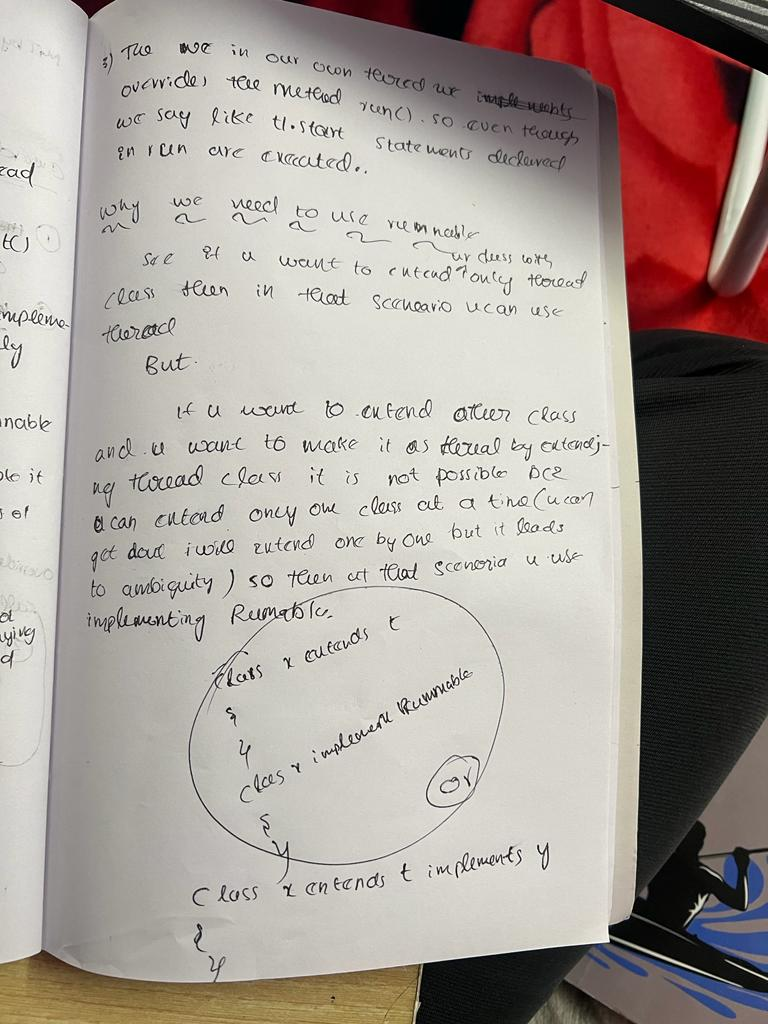 ead
t()
impleme-
ly
nable
ble it
s of
ying
d
3) The we in our own thered we implements
override, the method run(). so even though
we say like t1.start statements declared
in run are executed..
why we need to use runnable
see if u want to extend ur class with only thread
class then in that sceneario u can use
theread
But.
if u want to extend other class
and u want to make it as thread by extendi-
ng thread class it is not possible bcz
u can extend only one class at a time (u can
get dout i will extend one by one but it leads
to ambiguity) so then at that scenoria u use
implementing Runnable.
class x extends t
{
}
class x implement Runnable
{
}
or
class x extends t implements y
{
}